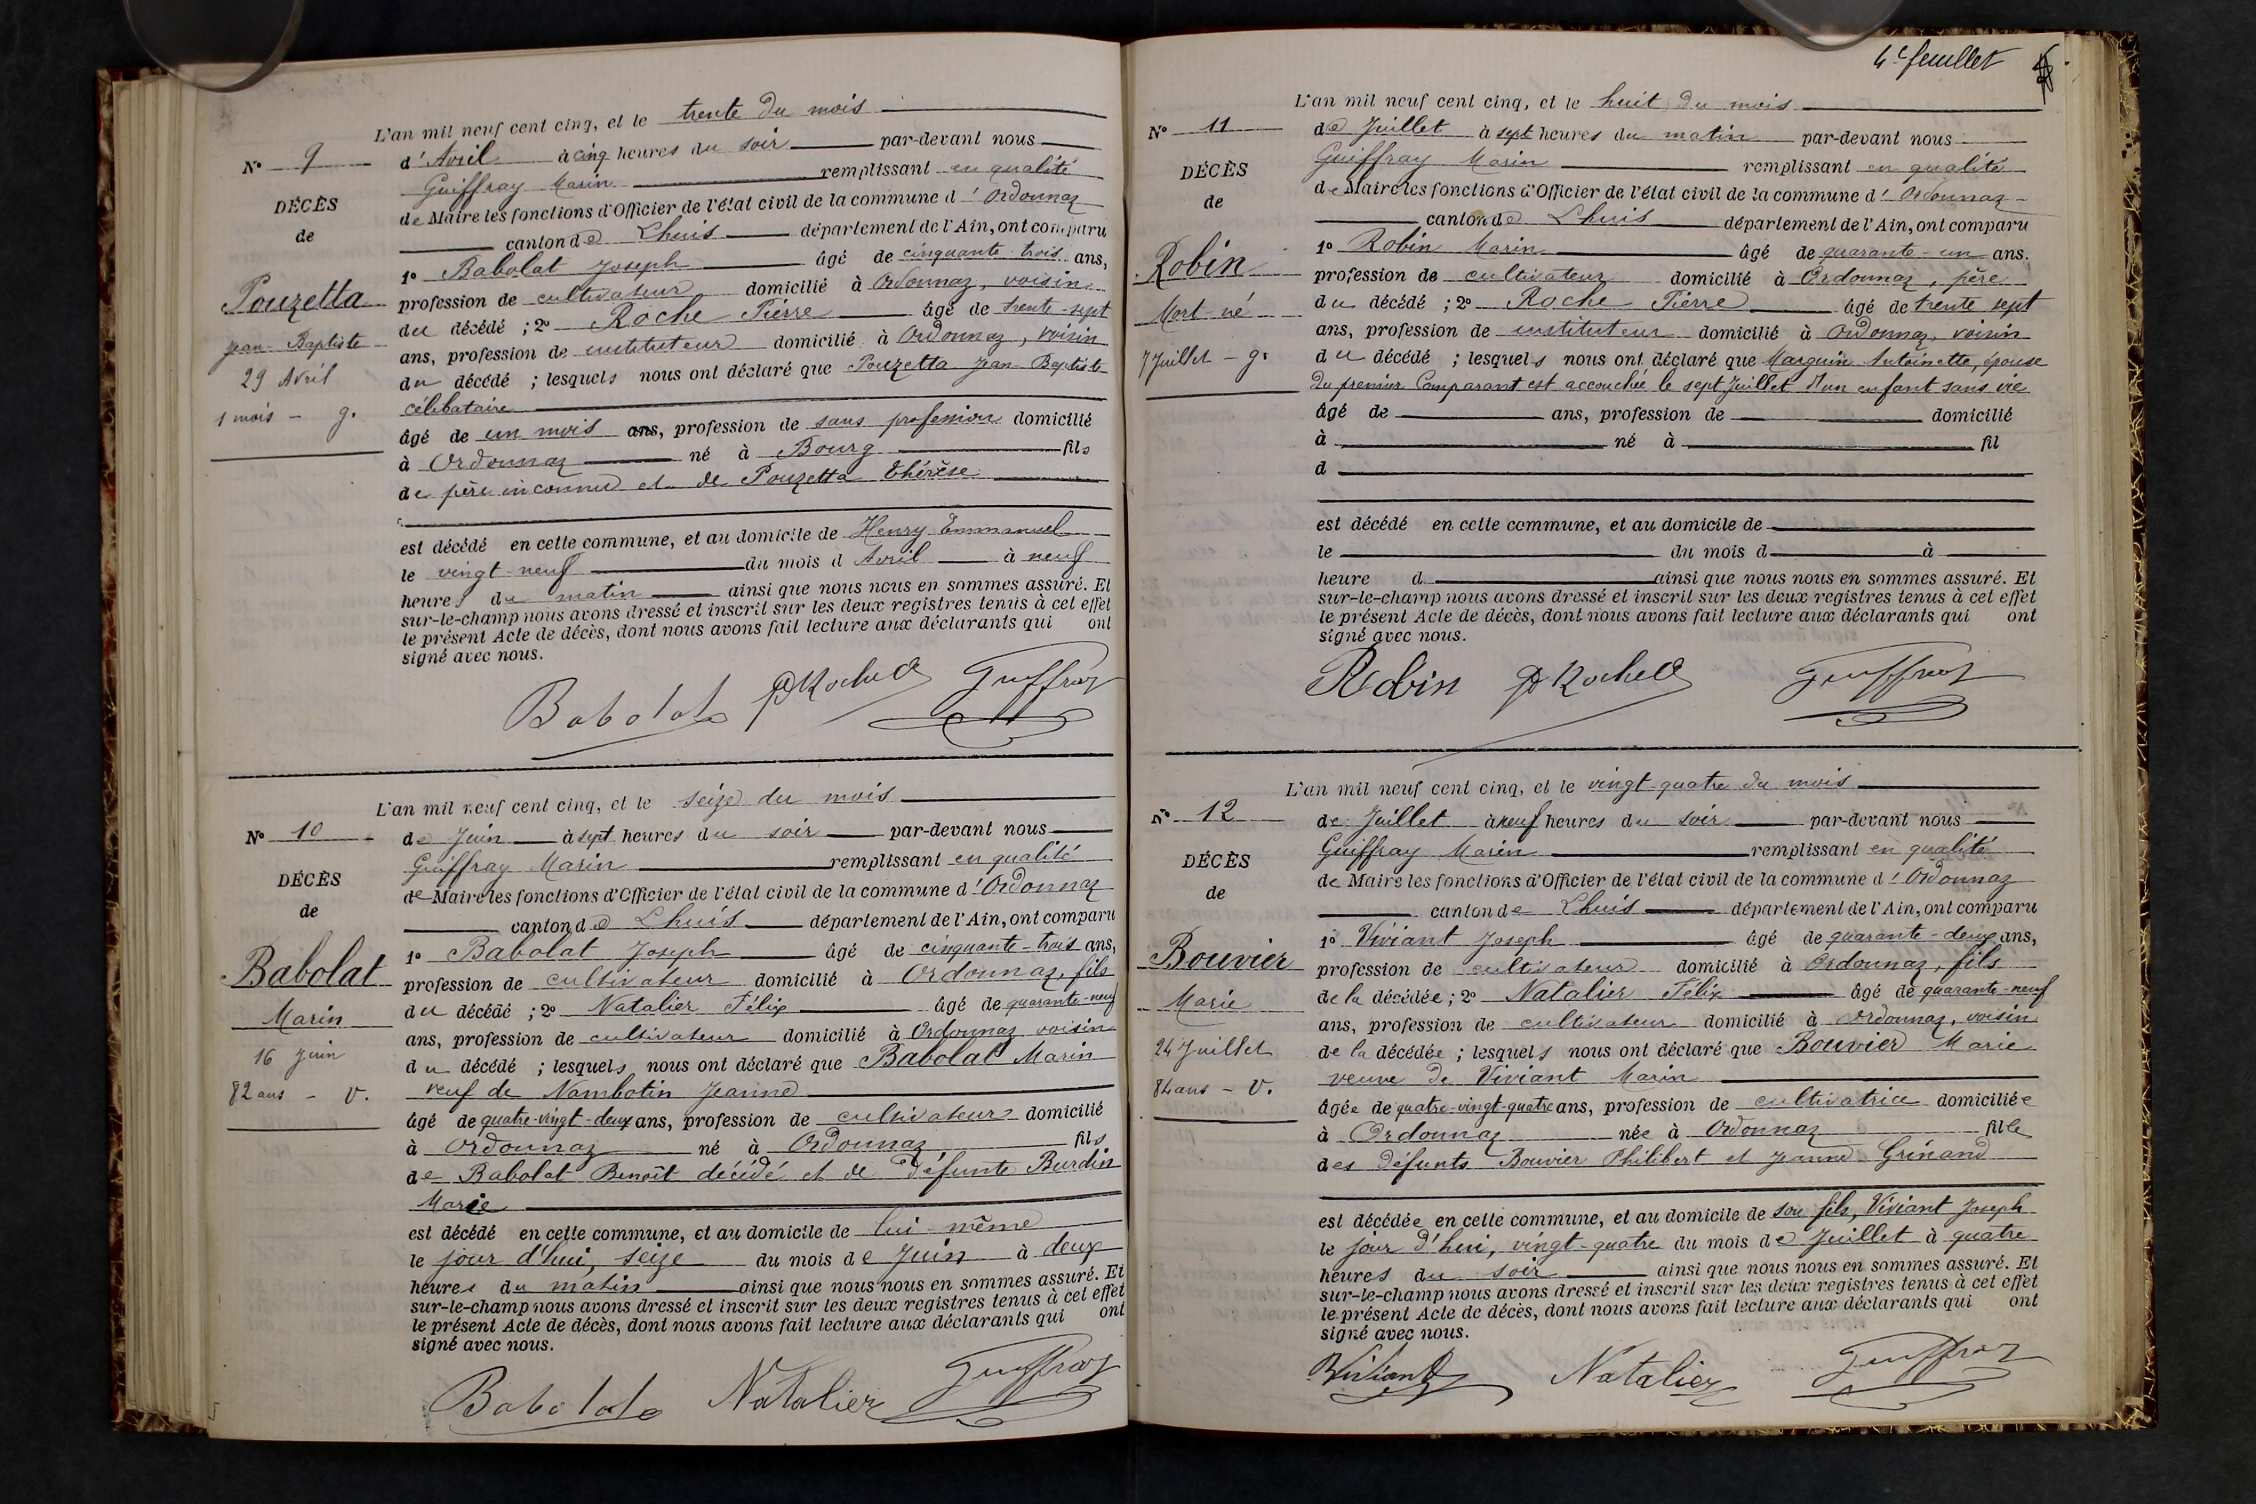 L'an mil neuf cent cinq, et le trente du mois
N° 9
d'Avril à cinq heures du soir par-devant nous
Guiffray Marin remplissant en qualité
DÉCÈS
de Maire les fonctions d'Officier de l'état civil de la commune d'Ordonnaz
de
canton de Lhuis département de l'Ain, ont comparu
1° Babolat Joseph âgé de cinquante-trois ans,
Pouzetta
profession de cultivateur domicilié à Ordonnaz, voisin
du décédé ; 2° Roche Pierre âgé de trente-sept
Jean-Baptiste
ans, profession de instituteur domicilié à Ordonnaz, voisin
29 Avril
du décédé ; lesquels nous ont déclaré que Pouzetta Jean-Baptiste
célibataire
1 mois - g.
âgé de un mois ans, profession de sans profession domicilié
à Ordonnaz né à Bourg fils
de père inconnu et de Pouzetta Thérèse
est décédé en cette commune, et au domicile de Henry Emmanuel
le vingt-neuf du mois d'Avril à neuf
heures du matin ainsi que nous nous en sommes assuré. Et
sur-le-champ nous avons dressé et inscrit sur les deux registres tenus à cet effet
le présent Acte de décès, dont nous avons fait lecture aux déclarants qui ont
signé avec nous.
Babolat P Roche Guiffray
L'an mil neuf cent cinq, et le seize du mois
N° 10
de Juin à sept heures du soir par-devant nous
Guiffray Marin remplissant en qualité
DÉCÈS
de Maire les fonctions d'Officier de l'état civil de la commune d'Ordonnaz
de
canton de Lhuis département de l'Ain, ont comparu
1° Babolat Joseph âgé de cinquante-trois ans,
Babolat
profession de cultivateur domicilié à Ordonnaz, fils
du décédé ; 2° Natalier Félix âgé de quarante-neuf
Marin
ans, profession de cultivateur domicilié à Ordonnaz voisin
16 Juin
du décédé ; lesquels nous ont déclaré que Babolat Marin
82 ans - V.
veuf de Nambotin Jeanne
âgé de quatre-vingt-deux ans, profession de cultivateur domicilié
à Ordonnaz né à Ordonnaz fils
de Babolat Benoît décédé et de défunte Burdin
Marie
est décédé en cette commune, et au domicile de lui-même
le jour d'hui, seize du mois de Juin à deux
heures du matin ainsi que nous nous en sommes assuré. Et
sur-le-champ nous avons dressé et inscrit sur les deux registres tenus à cet effet
le présent Acte de décès, dont nous avons fait lecture aux déclarants qui ont
signé avec nous.
Babolat Natalier Guiffray
4e feuillet
L'an mil neuf cent cinq, et le huit du mois
N° 11
de Juillet à sept heures du matin par-devant nous
Guiffray Marin remplissant en qualité
DÉCÈS
de Maire les fonctions d'Officier de l'état civil de la commune d'Ordonnaz
de
canton de Lhuis département de l'Ain, ont comparu
1° Robin Marin âgé de quarante-un ans.
Robin
profession de cultivateur domicilié à Ordonnaz, père
du décédé ; 2° Roche Pierre âgé de trente sept
Mort-né
ans, profession de instituteur domicilié à Ordonnaz, voisin
7 Juillet - g.
du décédé ; lesquels nous ont déclaré que Marguin Antoinette, épouse
du premier Comparant est accouchée le sept Juillet d'un enfant sans vie
âgé de ans, profession de domicilié
à né à fil
d
est décédé en cette commune, et au domicile de
le du mois d à
heure d ainsi que nous nous en sommes assuré. Et
sur-le-champ nous avons dressé et inscrit sur les deux registres tenus à cet effet
le présent Acte de décès, dont nous avons fait lecture aux déclarants qui ont
signé avec nous.
Robin P Roche Guiffray
L'an mil neuf cent cinq, et le vingt-quatre du mois
N° 12
de Juillet à neuf heures du soir par-devant nous
Guiffray Marin remplissant en qualité
DÉCÈS
de Maire les fonctions d'Officier de l'état civil de la commune d'Ordonnaz
de
canton de Lhuis département de l'Ain, ont comparu
1° Viviant Joseph âgé de quarante-deux ans,
Bouvier
profession de cultivateur domicilié à Ordonnaz, fils
Marie
de la décédée ; 2° Natalier Félix âgé de quarante-neuf
ans, profession de cultivateur domicilié à Ordonnaz, voisin
24 Juillet
de la décédée ; lesquels nous ont déclaré que Bouvier Marie
84 ans - V.
veuve de Viviant Marin
âgée de quatre-vingt-quatre ans, profession de cultivatrice domiciliée
à Ordonnaz née à Ordonnaz fille
des défunts Bouvier Philibert et Jeanne Grinand
est décédée en cette commune, et au domicile de son fils, Viviant Joseph
le jour d'hui, vingt-quatre du mois de Juillet à quatre
heures du soir ainsi que nous nous en sommes assuré. Et
sur-le-champ nous avons dressé et inscrit sur les deux registres tenus à cet effet
le présent Acte de décès, dont nous avons fait lecture aux déclarants qui ont
signé avec nous.
Viviant Natalier Guiffray